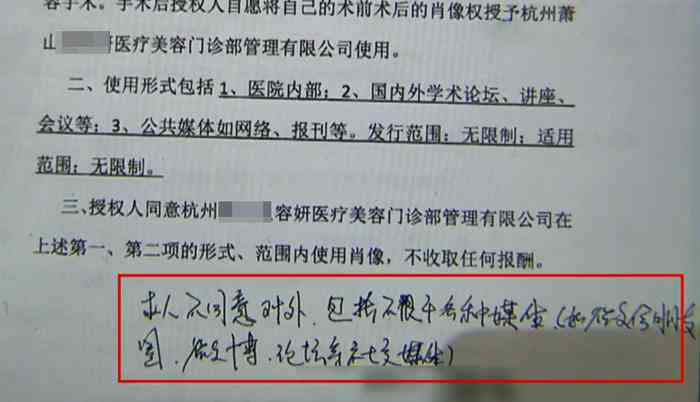 容手术。手术后授权人自愿将自己的术前术后的肖像权授予杭州萧
山 妍医疗美容门诊部管理有限公司使用。
二、使用形式包括1、医院内部；2、国内外学术论坛、讲座、
会议等；3、公共媒体如网络、报刊等。发行范围：无限制；适用
范围：无限制。
三、授权人同意杭州 容妍医疗美容门诊部管理有限公司在
上述第一、第二项的形式、范围内使用肖像，不收取任何报酬。
本人不同意对外，包括不限于各种媒体（如 朋友
圈、微博、论坛等社交媒体）